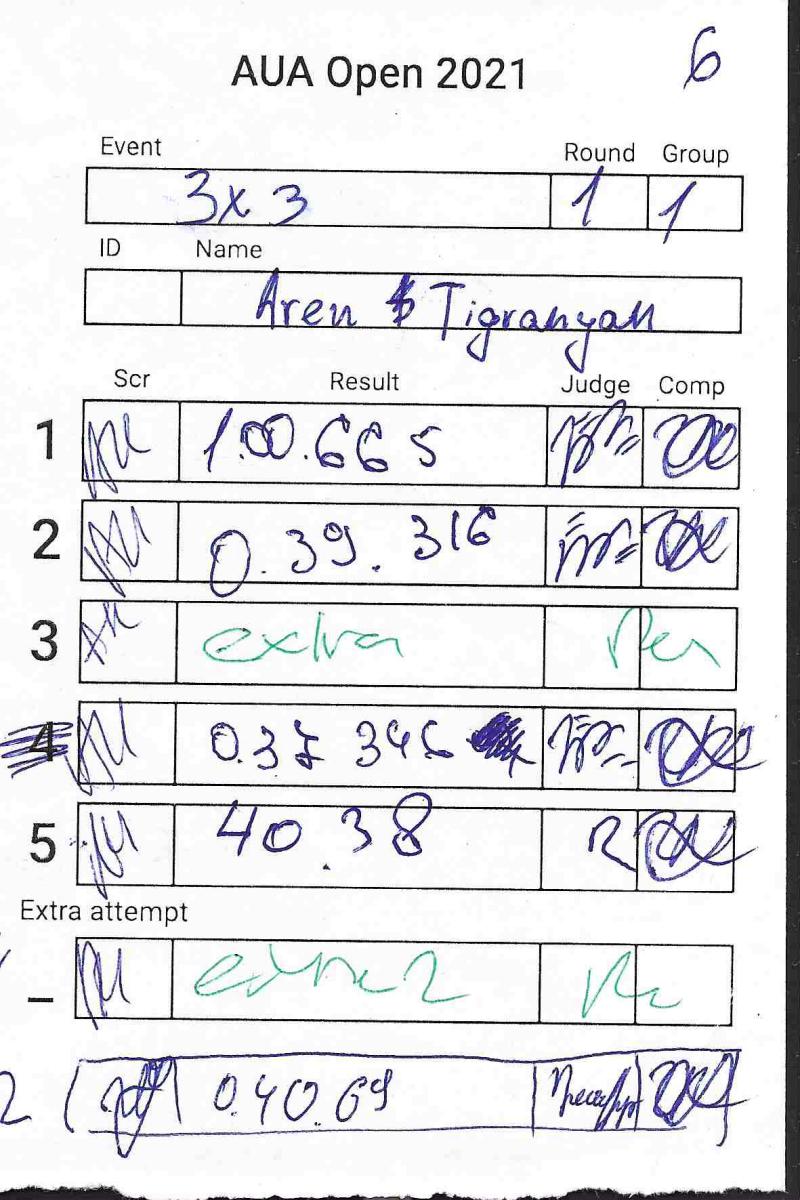 AUA Open 2021 6
Event Round Group
3x3 1 1
ID Name
Aren Tigranyan
Scr Result Judge Comp
1 1.00.665
2 0.39.316
3 extra
4 0.37 346
5 40.38
Extra attempt
– extra 2
2 0.40.69